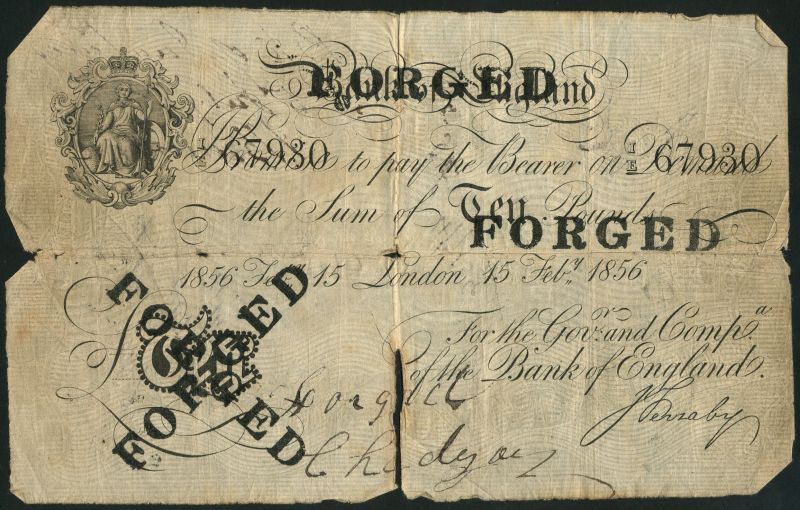 FORGED
Bank of England
I/E 67930 I/E 67930
to pay the Bearer on Demand
the Sum of Ten Pounds
FORGED
1856 Feb.y 15 London 15 Feb.y 1856
FORGED
FORGED
For the Gov.r and Comp.a
of the Bank of England.
Ten